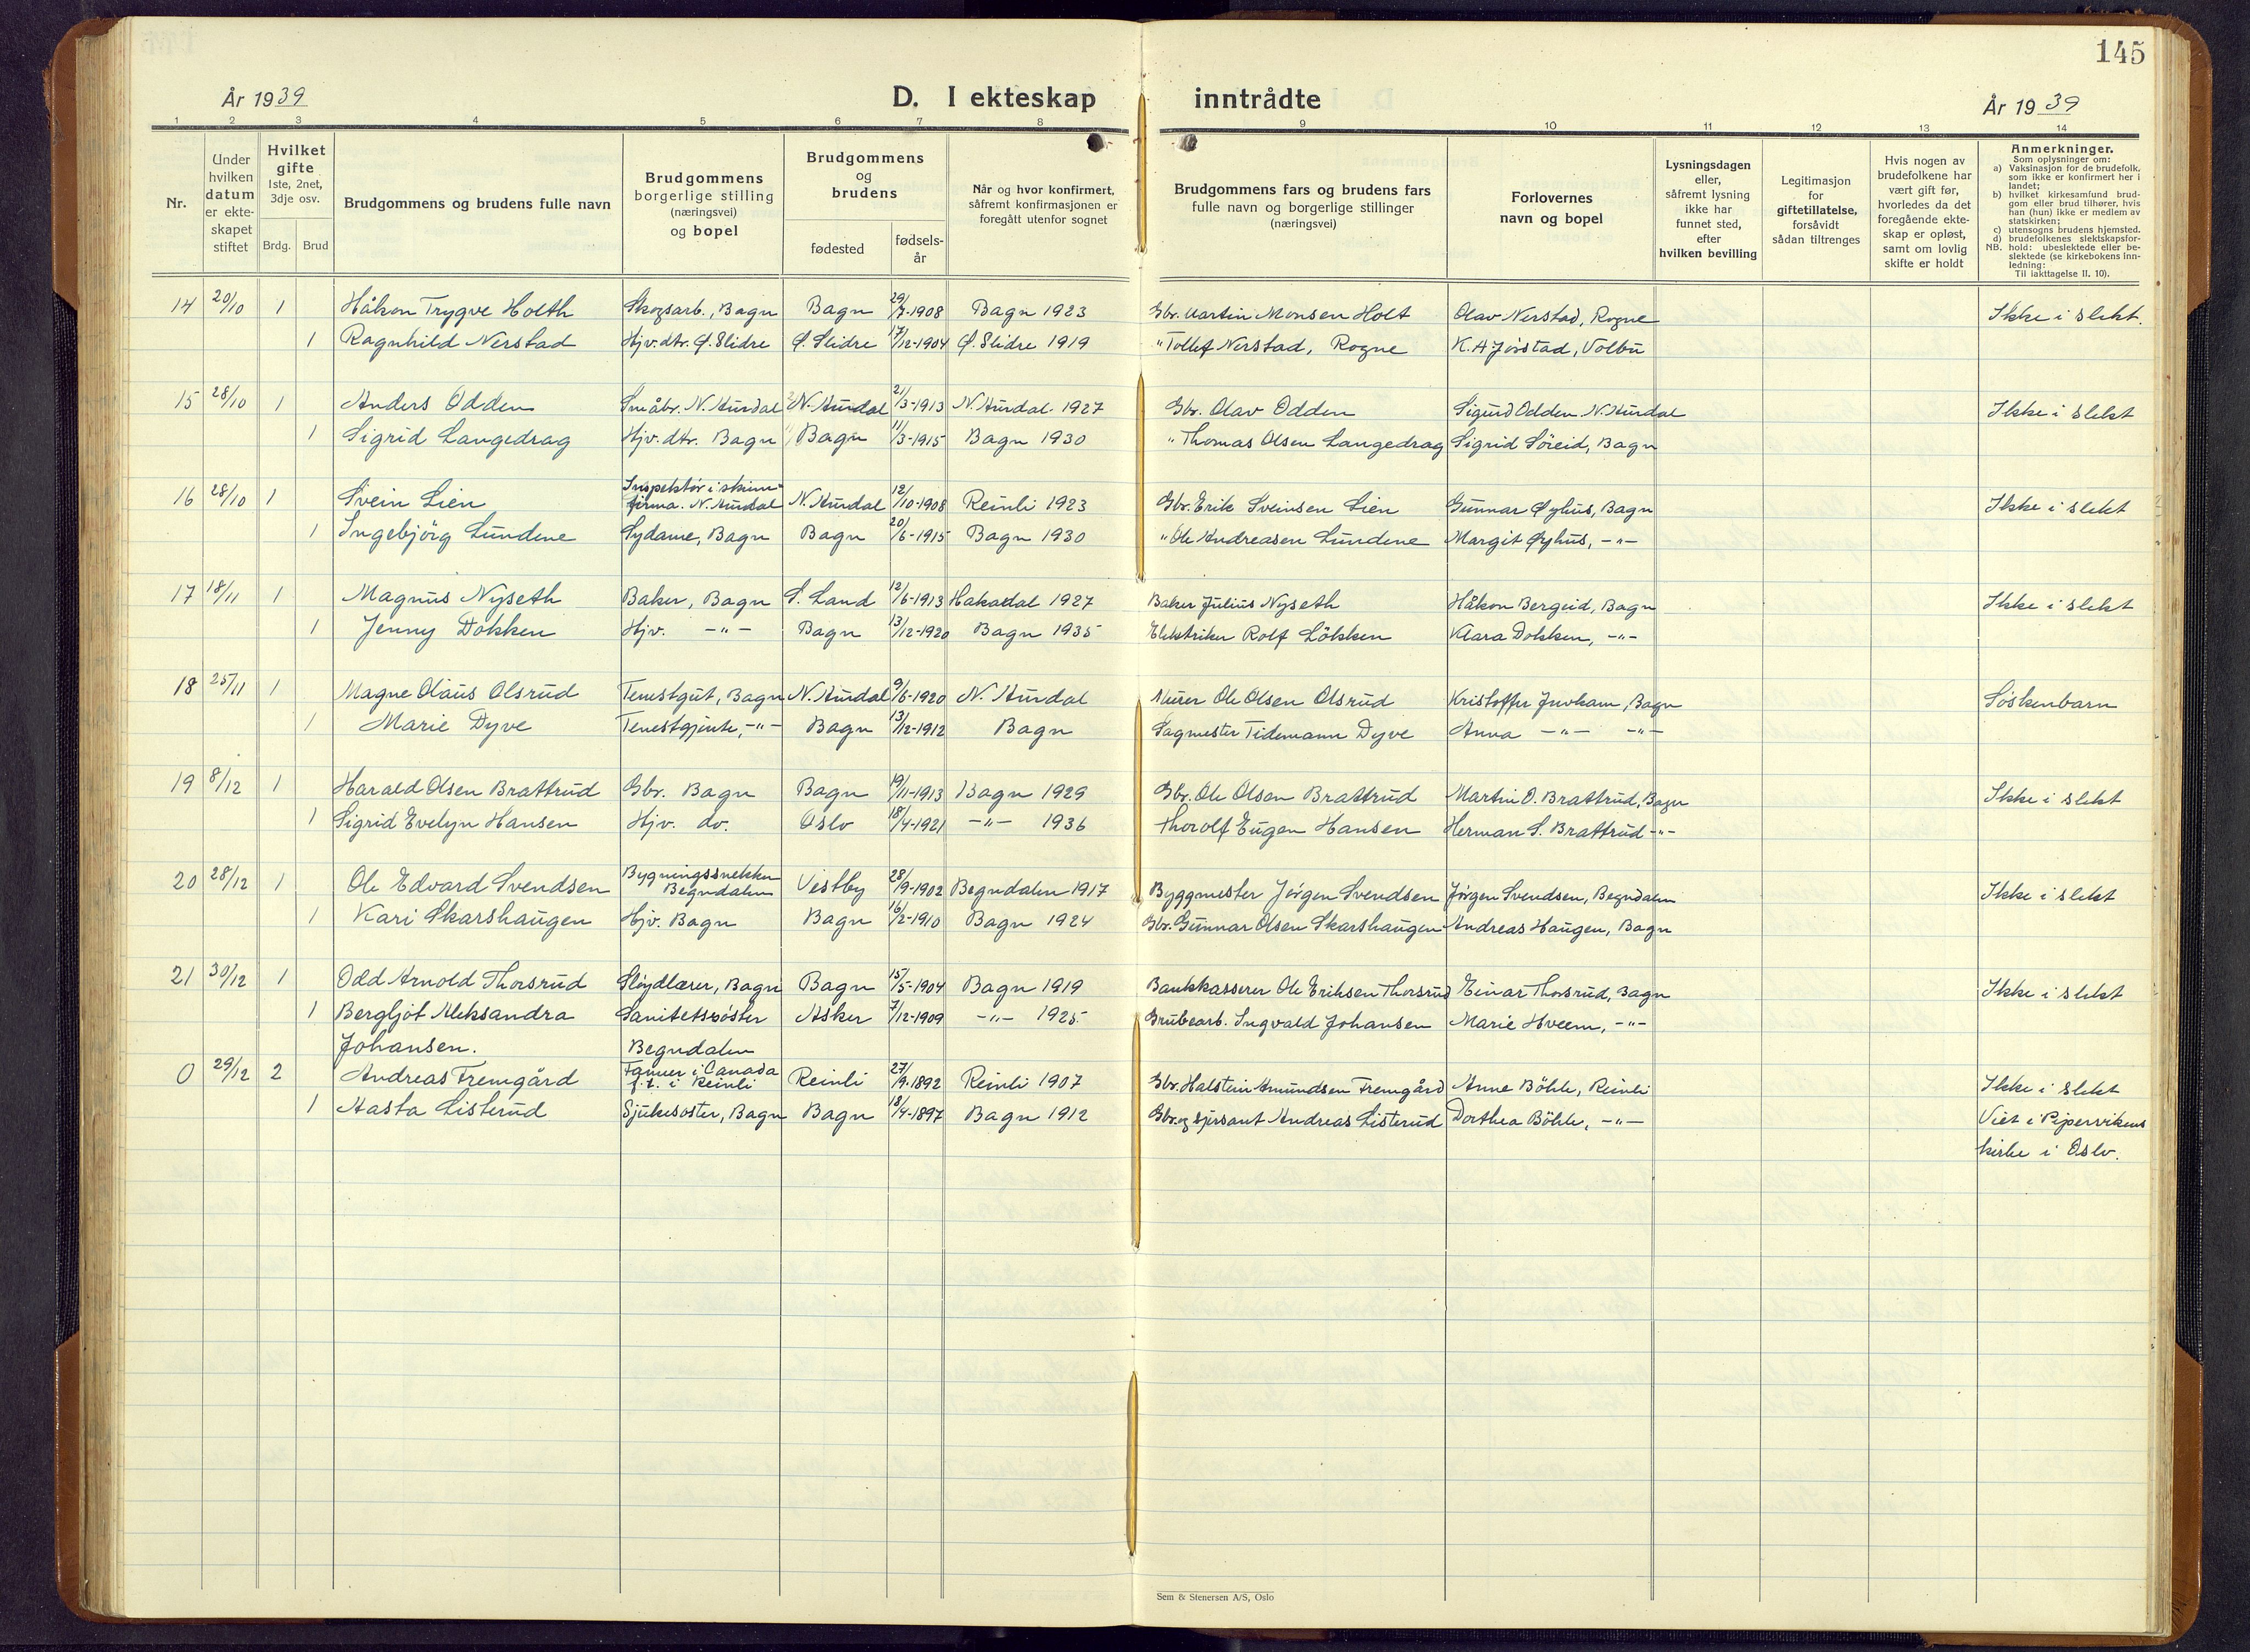 145
År 1939
D. I ekteskap inntrådte
År 1939
1 2 3 4 5 6 7 8 9 10 11 12 13 14
Nr.
Under hvilken datum er ekte-skapet stiftet
Hvilket gifte 1ste, 2net, 3dje osv.
Brdg. Brud
Brudgommens og brudens fulle navn
Brudgommens borgerlige stilling (næringsvei) og bopel
Brudgommens og brudens
fødested
fødsels-år
Når og hvor konfirmert, såfremt konfirmasjonen er foregått utenfor sognet
Brudgommens fars og brudens fars fulle navn og borgerlige stillinger (næringsvei)
Forlovernes navn og bopel
Lysningsdagen eller, såfremt lysning ikke har funnet sted, efter hvilken bevilling
Legitimasjon for giftetillatelse, forsåvidt sådan tiltrenges
Hvis nogen av brudefolkene har vært gift før, hvorledes da det foregående ekte-skap er opløst, samt om lovlig skifte er holdt
Anmerkninger.
Som oplysninger om:
a) Vaksinasjon for de brudefolk. som ikke er konfirmert her i landet;
b) hvilket kirkesamfund brud-gom eller brud tilhører, hvis han (hun) ikke er medlem av statskirken;
c) utensogns brudens hjemsted.
d) brudefolkenes slektskapsfor-
NB. hold: ubeslektede eller be-slektede (se kirkebokens inn-ledning:
Til iakttagelse II. 10).
14 20/10 1 Håkon Trygve Holth Skogsarb., Bagn Bagn 29/7-1908 Bagn 1923 Gbr. Martin Monsen Holt Olav Nerstad, Rogne Ikke i slekt.
1 Ragnhild Nerstad Hjv. dtr. Ø. Slidre Ø. Slidre 17/12-1904 Ø. Slidre 1919 " Tollef Nerstad, Rogne K. A Jørstad, Volbu
15 28/10 1 Anders Odden Småbr. N. Aurdal N. Aurdal 21/3-1913 N. Aurdal 1927 Gbr. Olav Odden Sigurd Odden N. Aurdal Ikke i slekt
1 Sigrid Langedrag Hjv. dtr. Bagn Bagn 11/3-1915 Bagn 1930 " Thomas Olsen Langedrag Sigrid Søreid, Bagn
16 28/10 1 Svein Lien Inspektør i skinn-firma. N. Aurdal N. Aurdal 12/10-1908 Reinli 1923 Gbr. Erik Sveinsen Lien Gunnar Øyhus, Bagn Ikke i slekt
1 Ingebjörg Lundene Sydame, Bagn Bagn 20/6-1915 Bagn 1930 " Ole Andreasen Lundene Margit Øyhus, -"-
17 18/11 1 Magnus Nyseth Baker, Bagn S. Land 12/6-1913 Hakadal 1927 Baker Julius Nyseth Håkon Bergeid, Bagn Ikke i slekt
1 Jenny Dokken Hjv. -"- Bagn 13/12-1920 Bagn 1935 Elektriker Rolf Lökken Klara Dokken, -"-
18 25/11 1 Magne Olaus Olsrud Tenestgut, Bagn N. Aurdal 9/6-1920 N. Aurdal Murer Ole Olsen Olsrud Kristoffer Juvkam, Bagn Söskenbarn
1 Marie Dyve Tenestgjente, -"- Bagn 13/12-1912 Bagn Sagmester Tidemann Dyve Anna -"- -"-
19 8/12 1 Harald Olsen Brattrud Gbr. Bagn Bagn 19/11-1913 Bagn 1929 Gbr. Ole Olsen Brattrud Martin O. Brattrud, Bagn Ikke i slekt
1 Sigrid Evelyn Hansen Hjv. do. Oslo 18/4-1921 -"- 1936 Thorolf Eugen Hansen Herman S. Brattrud -"-
20 28/12 1 Ole Edvard Svendsen Bygningssnekker Begndalen Vestby 28/9-1902 Begndalen 1917 Byggmester Jörgen Svendsen Jörgen Svendsen, Begndalen Ikke i slekt
1 Kari Skarshaugen Hjv. Bagn Bagn 16/2-1910 Bagn 1924 Gbr. Gunnar Olsen Skarshaugen Andreas Haugen, Bagn
21 30/12 1 Odd Arnold Thorsrud Slöydlærer, Bagn Bagn 15/5-1904 Bagn 1919 Bankkasserer Ole Eriksen Thorsrud Einar Thorsrud, Bagn Ikke i slekt
1 Bergljot Aleksandra Sanitetssöster Asker 7/12-1909 -"- 1925 Grubearb. Ingvald Johansen Marie Hveem, -"-
Johansen. Begndalen
0 29/12 2 Andreas Fremgård Farmer i Canada f.t. i Reinli Reinli 27/9-1892 Reinli 1907 Gbr. Halstein Amundsen Fremgård Anne Böhle, Reinli Ikke i slekt
1 Aasta Listerud Sjukesöster, Bagn Bagn 18/4-1897 Bagn 1912 Gbr. og sersant Andreas Listerud Dorthea Böhle, -"- Viet i Pipervikens
kirke i Oslo.
Sem & Stenersen A/S, Oslo